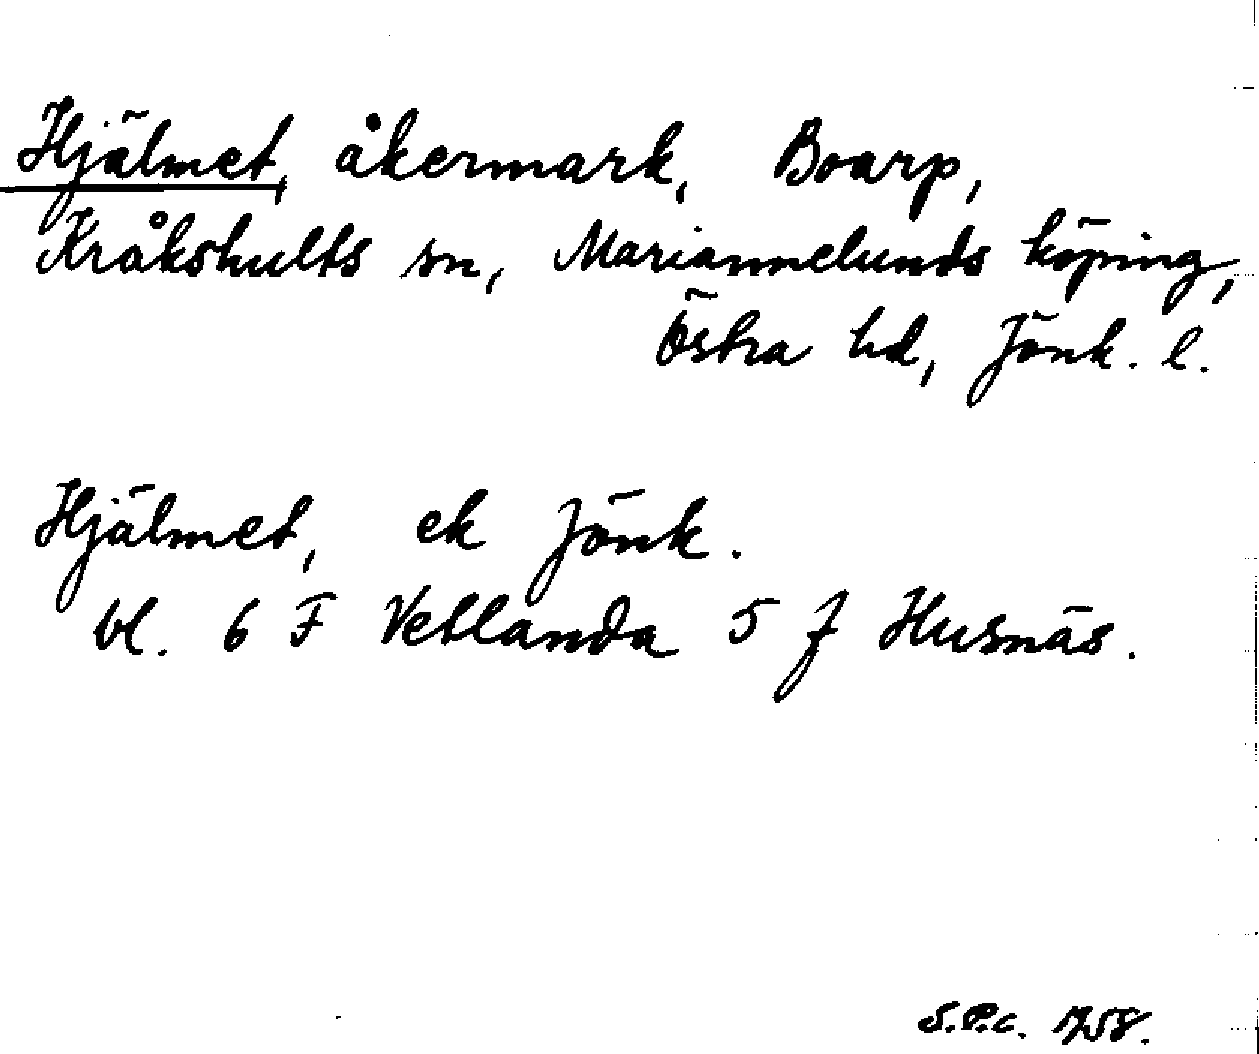 Hjälmet, åkermark, Boarp,
Kråkshults sn, Mariannelunds köping,
Östra hd, Jönk. l.
Hjälmet, ek Jönk.
bl. 6 F Vetlanda 5 f Husnäs.
S.P.c. 1958.